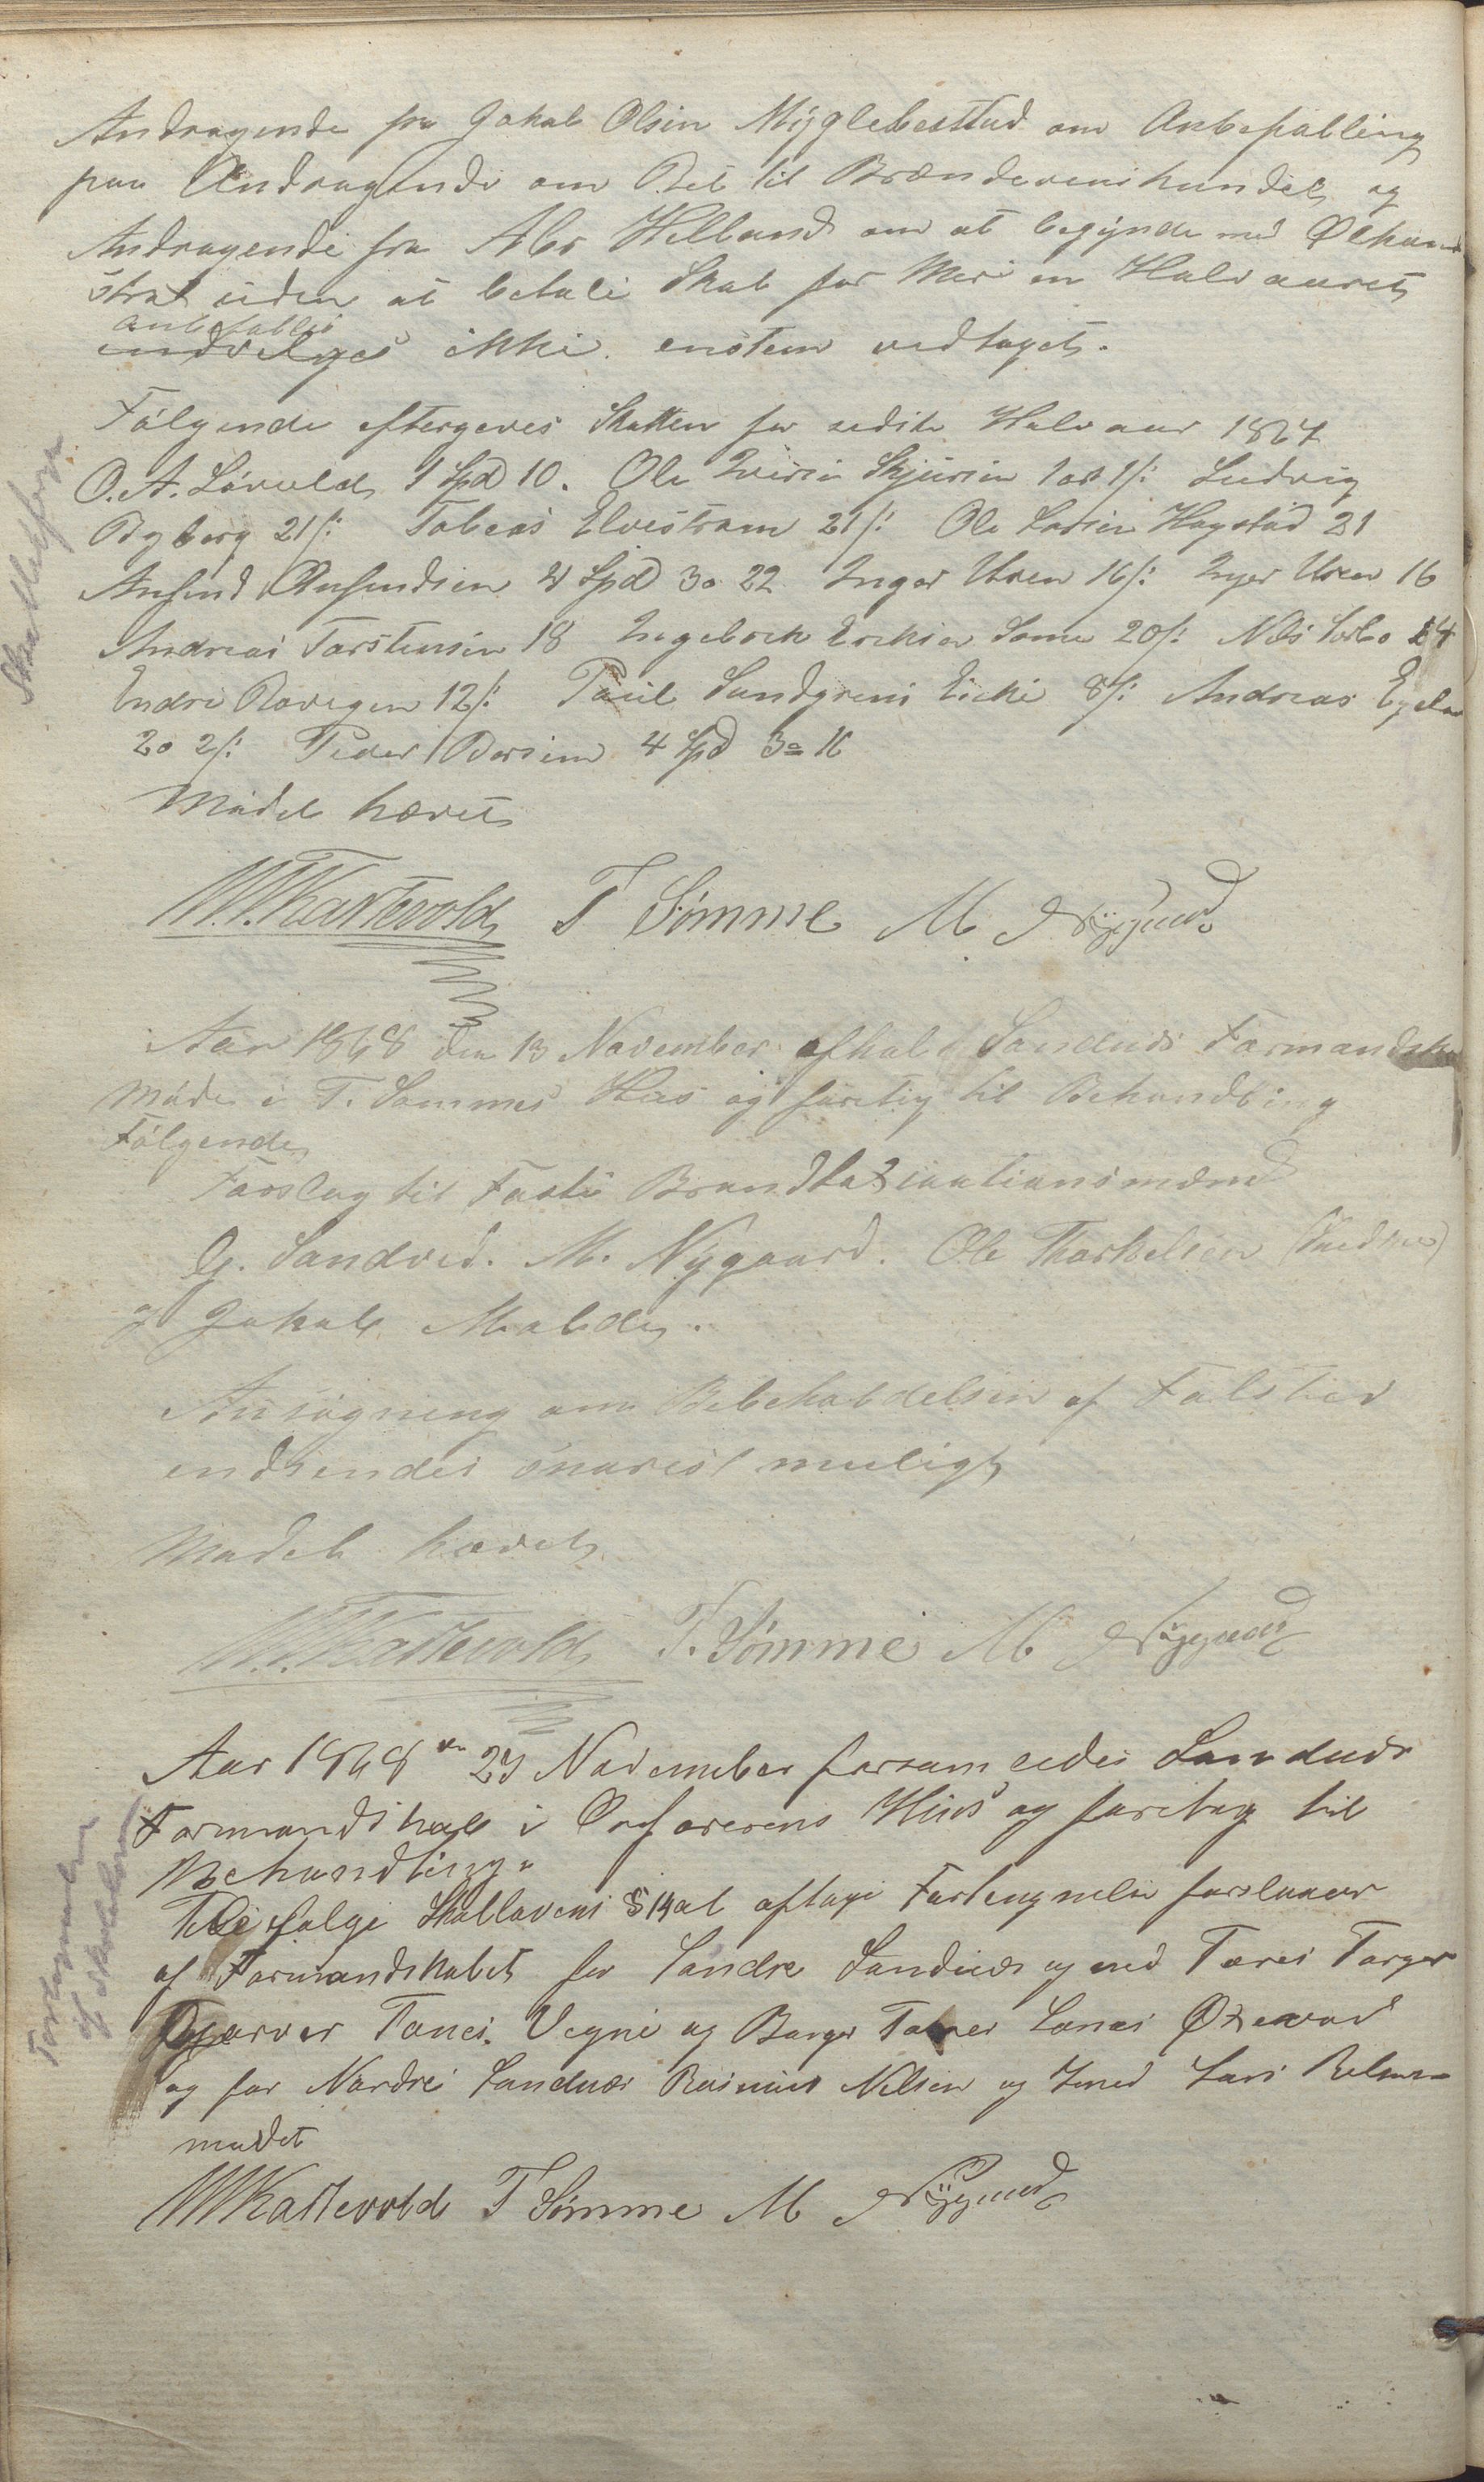 Andragende fra Jakob Olsen Myglebostad om Anbefalling
paa Andragende om Ret til Brændevinshandel og
Andragende fra Abr Helland om at begynde med Ølhand
strax uden at betale Skat for Mer en Halv aaret
anbefalles
indvilges ikke. enstem vedtaget.
Følgende eftergives Skatten for sidste Halv aar 1867
O. A. Løvold 1 Spd 10. Ole Iversen Skjursen 1 ort 1 s: Ludvig
Rygberg 21 s: Tobeas Elvestrøm 21 s: Ole Larsen Hagstad 21
Ansend Ansendsen 2 Spd 3o 22 Inger Uren 16 s: Inger Uren 16
Andreas Tarstensen 18 Ingeborh Eriksen Somme 20 s: Nils Sørbø 24
Endre Rovigen 12 s: Paul Sundgrens Enke 8 s: Andreas Egelan
2o 2 s: Peder Borsen 4 Spd 3o 16
Mødet hævet
W. T. Kartevold T Sömme M Nÿgaard
Aar 1868 den 13 November afholt Sandnes Formandska
Møde i T. Sommes Hus og foretog til Behandling
Følgende
Forslag til Faste Brandtaxsiautionsmænd
G. Sandved. M. Nygaard. Ole Tharkelsen (Snedker)
og Jakob Malde.
Ansøgning om Bibeholdelsen af Tolsted
endsendes snarest muligt
Mødet hævet
W. T. Kartevold T. Sömme M Nÿgaard
Aar 1868 den 23 November forsamledes Sandnes
Formandskab i Ordførerens Hus og foretog til
Behandling.
Til ifølge Skatlovens § 14 at optage Fortegnelse forslaaes
af Formandskabet for Søndre Sandnes og med Tores Torger
Garver Tønes. Vegne og Borger Tønes Lones Øxevad
og for Nordre Sandnes Rasmus Nilsen og Smed Lars
mødet
W T Kartevold T Sömme M Nÿgaard
Skatteftergi
Fortegnelse
af skatlov